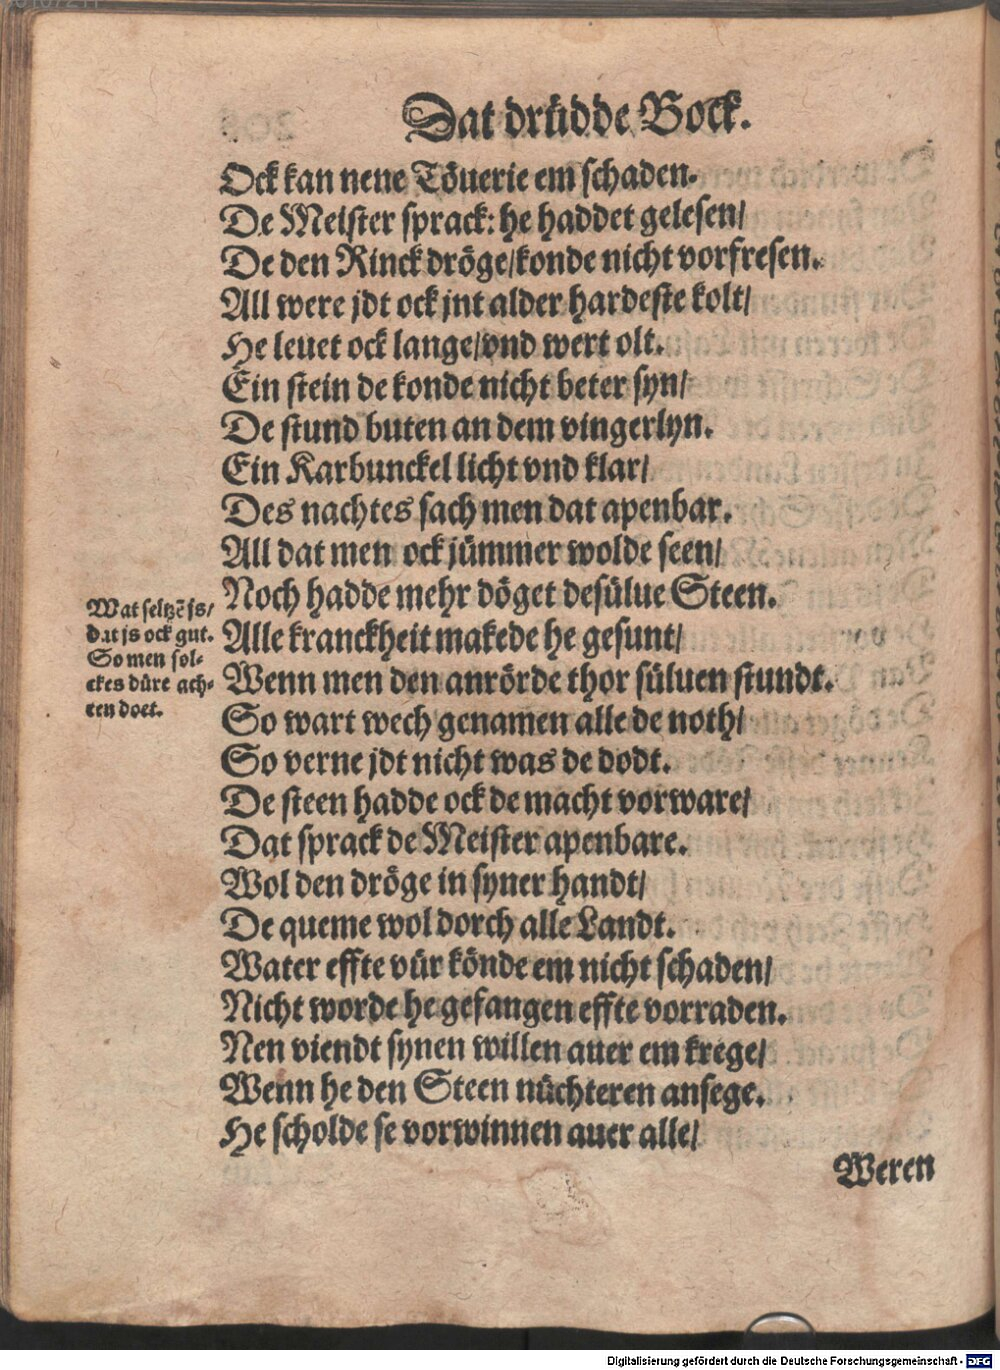 Dat drüdde Bock.
Ock kan nene Töuerie em schaden.
De Meister sprack: he haddet gelesen/
De den Rinck dröge/konde nicht vorfresen.
All were jdt ock jnt alder hardeste kolt/
He leuet ock lange/vnd wert olt.
Ein stein de konde nicht beter syn/
De stund buten an dem vingerlyn.
Ein Karbunckel licht vnd klar/
Des nachtes sach men dat apenbar.
All dat men ock jümmer wolde seen/
Noch hadde mehr döget desülue Steen.
Alle kranckheit makede he gesunt/
Wenn men den anrörde thor süluen stundt.
So wart wech genamen alle de noth/
So verne jdt nicht was de dodt.
De steen hadde ock de macht vorware/
Dat sprack de Meister apenbare.
Wol den dröge in syner handt/
De queme wol dorch alle Landt.
Water effte vür könde em nicht schaden/
Nicht worde he gefangen effte vorraden.
Nen viendt synen willen auer em krege/
Wenn he den Steen nüchteren ansege.
He scholde se vorwinnen auer alle/
Weren
Wat seltzē js/
dat js ock gut.
So men sol-
ckes düre ach-
ten doet.
Digitalisierung gefördert durch die Deutsche Forschungsgemeinschaft - DFG